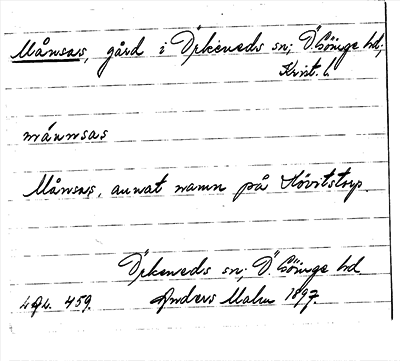 Månsas, gård i Örkeneds sn; Ö. Göinge hd;
Krist. l.
männsas
Månsas, annat namn på Hövitstorp.
Örkeneds sn; Ö. Göinge hd
459. Anders Malm 1897.